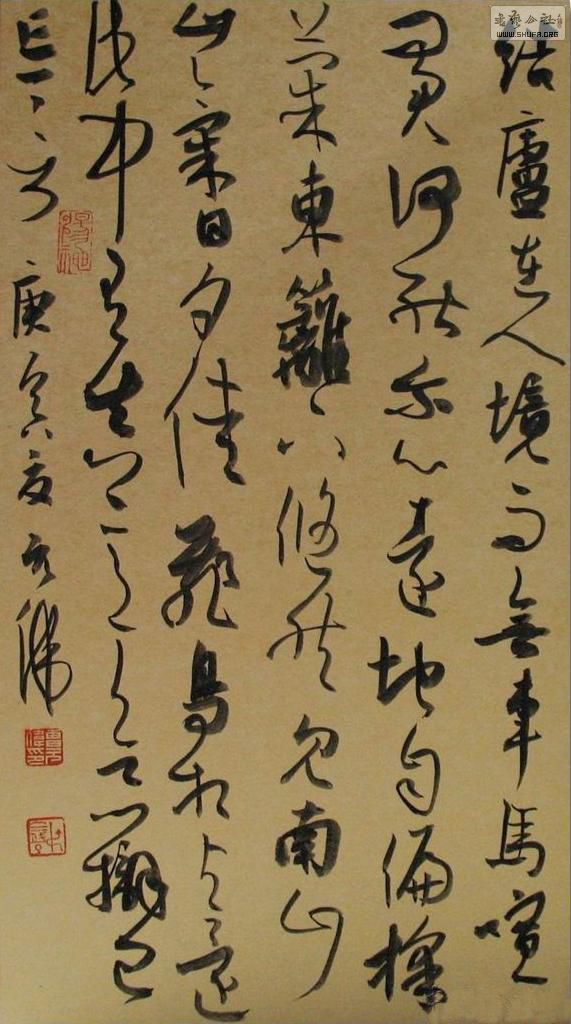 書藝公社
WWW.SHUFA.ORG
結廬在人境而無車馬喧
問君何能爾心遠地自偏採
菊東籬下悠然見南山
山氣日夕佳飛鳥相與還
此中有真意欲辨已
忘言 庚寅夏